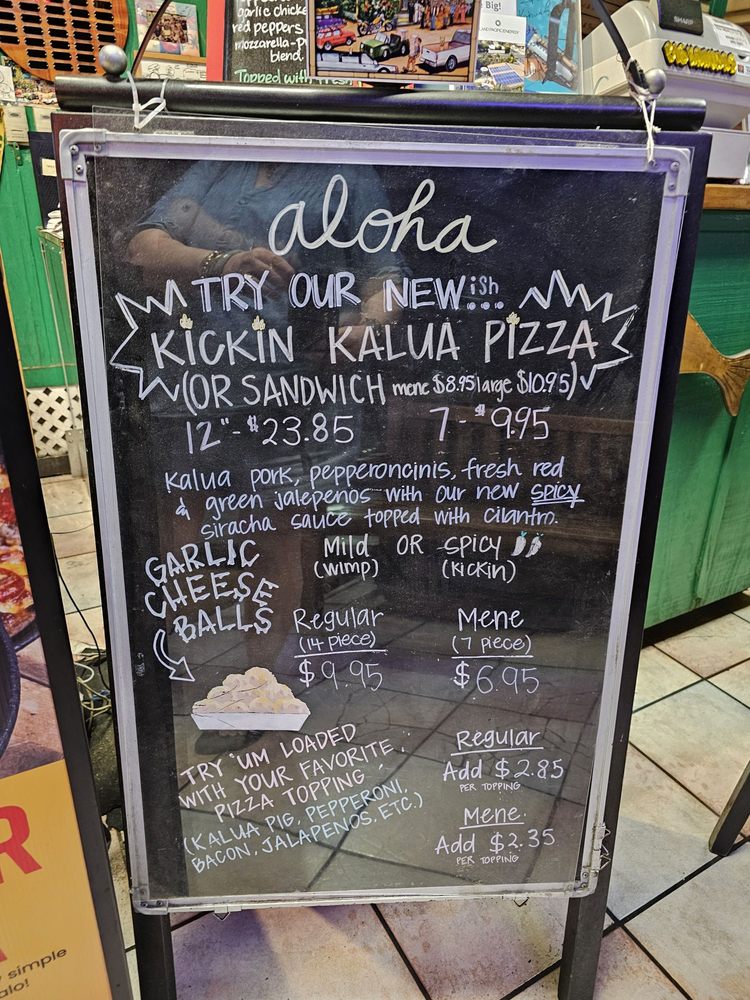 garlic chicke
red peppers
mozzarella-p
blend.
Topped with fresh
Big!
SHARP
aloha
TRY OUR NEW ish...
KICKIN KALUA PIZZA
(OR SANDWICH mene $8.95 large $10.95)
12"-$23.85 7-"$9.95
Kalua pork, pepperoncinis, fresh red
& green jalepenos with our new SPICY
siracha sauce topped with cilantro.
Mild OR SPICY
(WIMP) (KICKIN)
GARLIC
CHEESE
BALLS
Regular Mene
(14 piece) (7 piece)
$9.95 $6.95
TRY 'UM LOADED
WITH YOUR FAVORITE
PIZZA TOPPING
(KALUA PIG, PEPPERONI,
BACON, JALAPENOS, ETC.)
Regular
Add $2.85
PER TOPPING
Mene
Add $2.35
PER TOPPING
R
simple
alo!